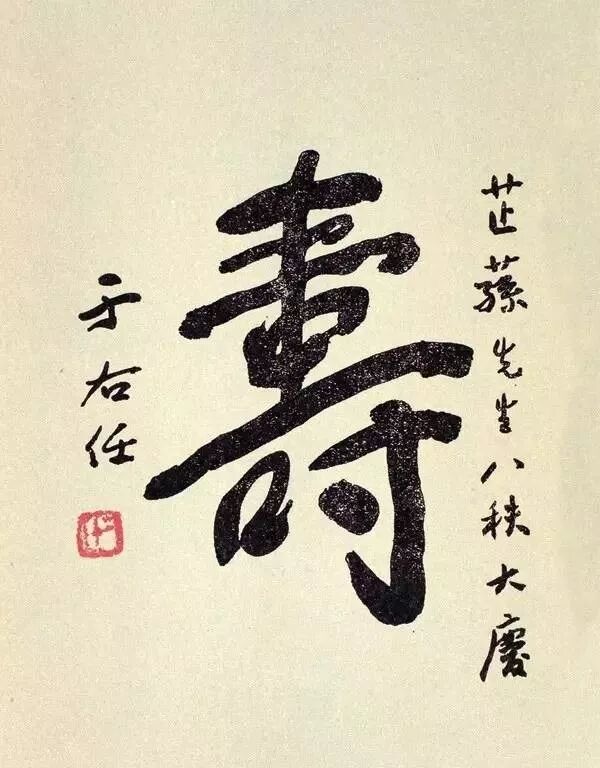 芷蓀先生八秩大慶
壽
于右任